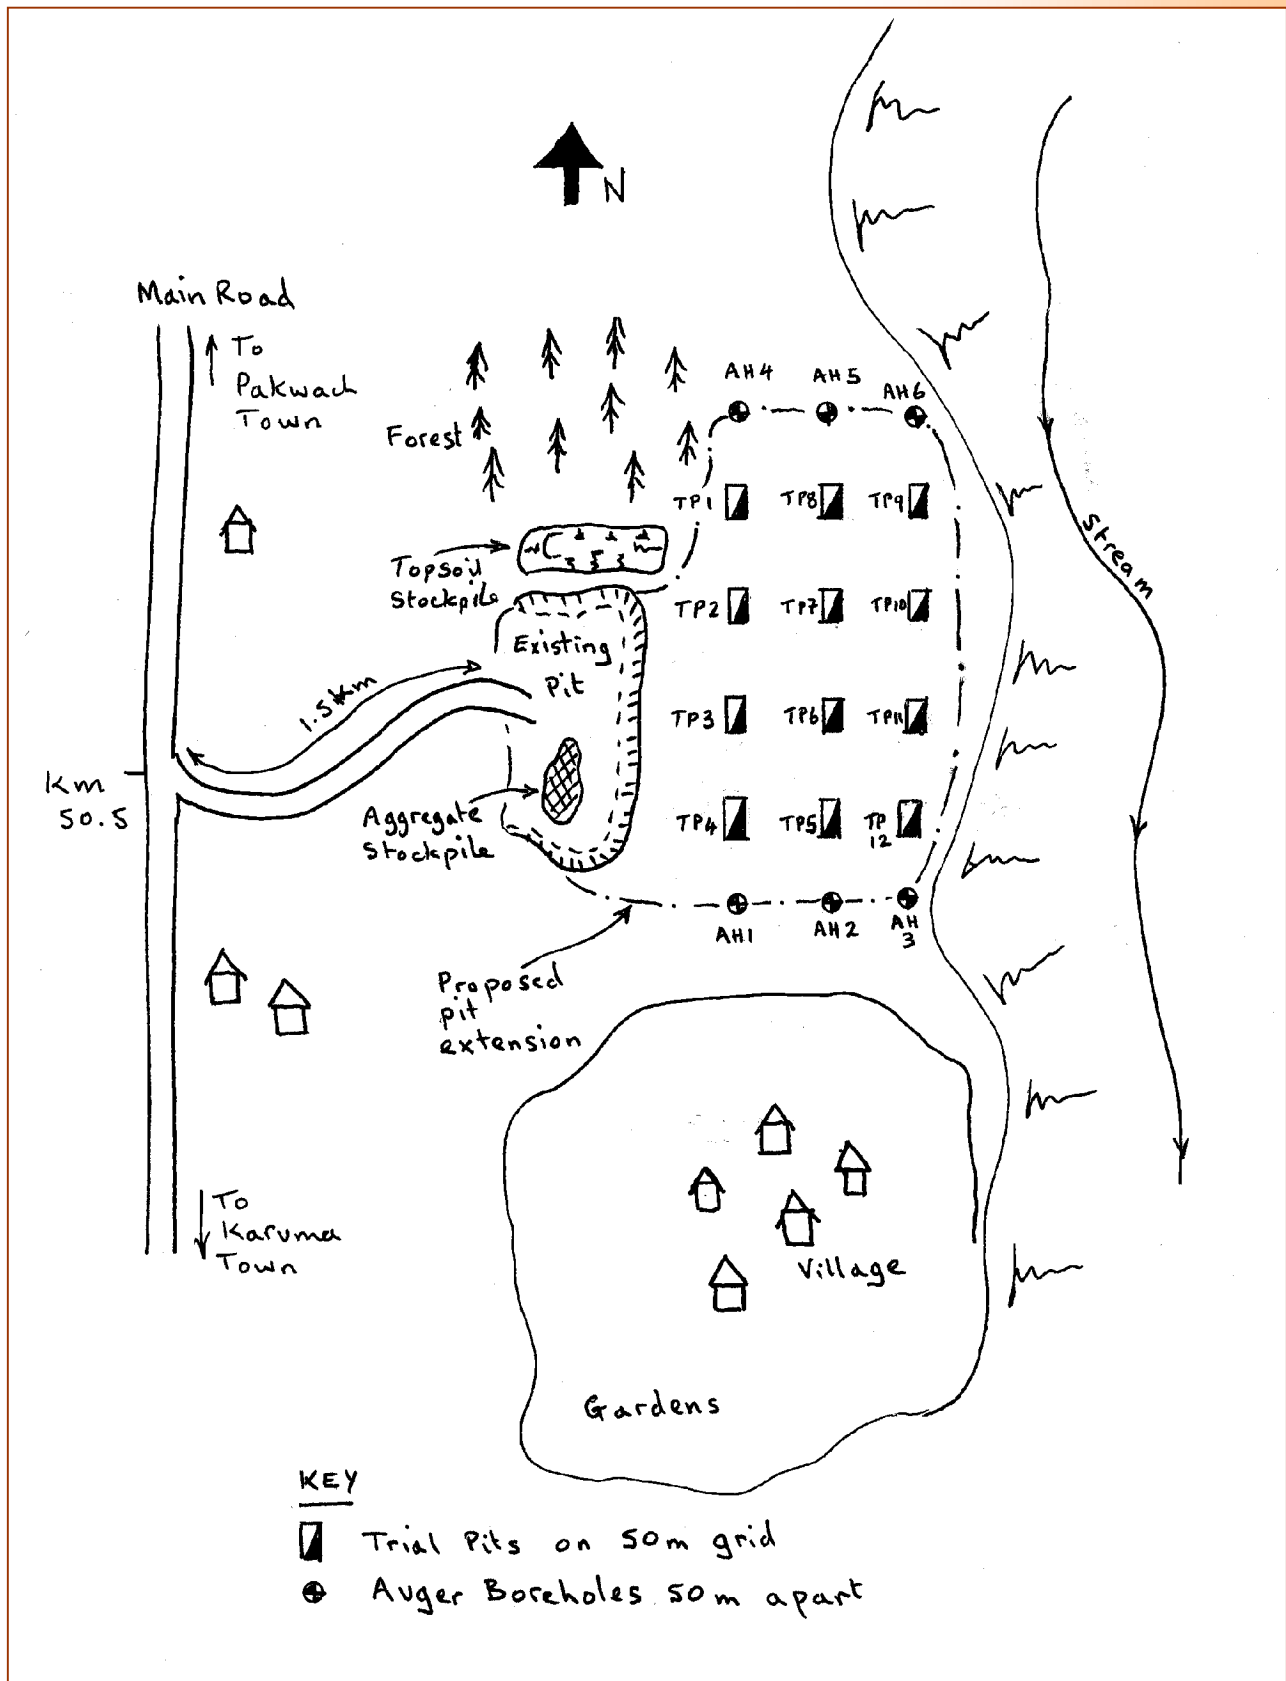 N
Main Road
To
Pakwach
Town
AH4
AH5
AH6
Forest
TP1
TP8
TP9
Stream
Topsoil
Stockpile
TP2
TP7
TP10
Existing
Pit
1.5km
TP3
TP6
TP11
Km
50.5
Aggregate
Stockpile
TP4
TP5
TP
12
AH1
AH2
AH
3
Proposed
pit
extension
To
Karuma
Town
Village
Gardens
KEY
Trial Pits on 50m grid
Auger Boreholes 50m apart